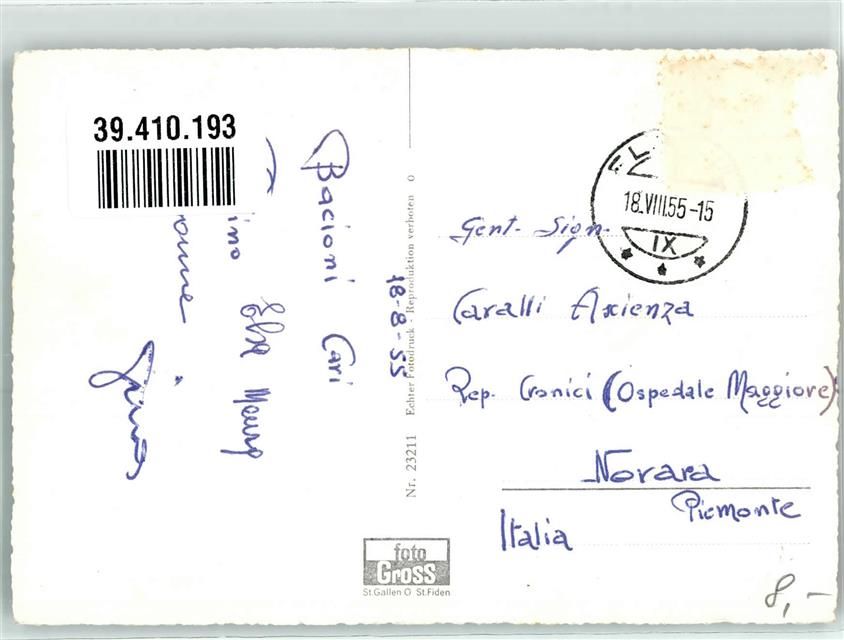 39.410.193
Bacioni Cari
18-8-55
Elsa
Nr. 23211 Echter Fotodruck - Reproduktion verboten O
18.VIII.55-15
IX
Gent. Sign.
Cavalli Ascienza
Rep. Cronici (Ospedale Maggiore)
Novara
Piemonte
Italia
foto
Gross
St.Gallen O St.Fiden
8,-